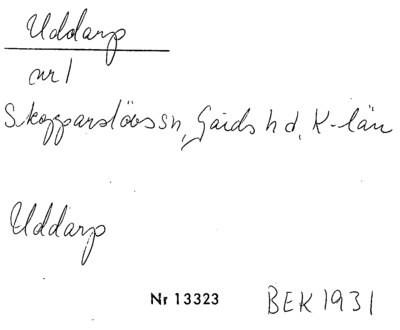 Uddarp
nr 1
Skepparslövs sn, Gärds hd, K-län
Uddarp
Nr 13323 BEK 1931